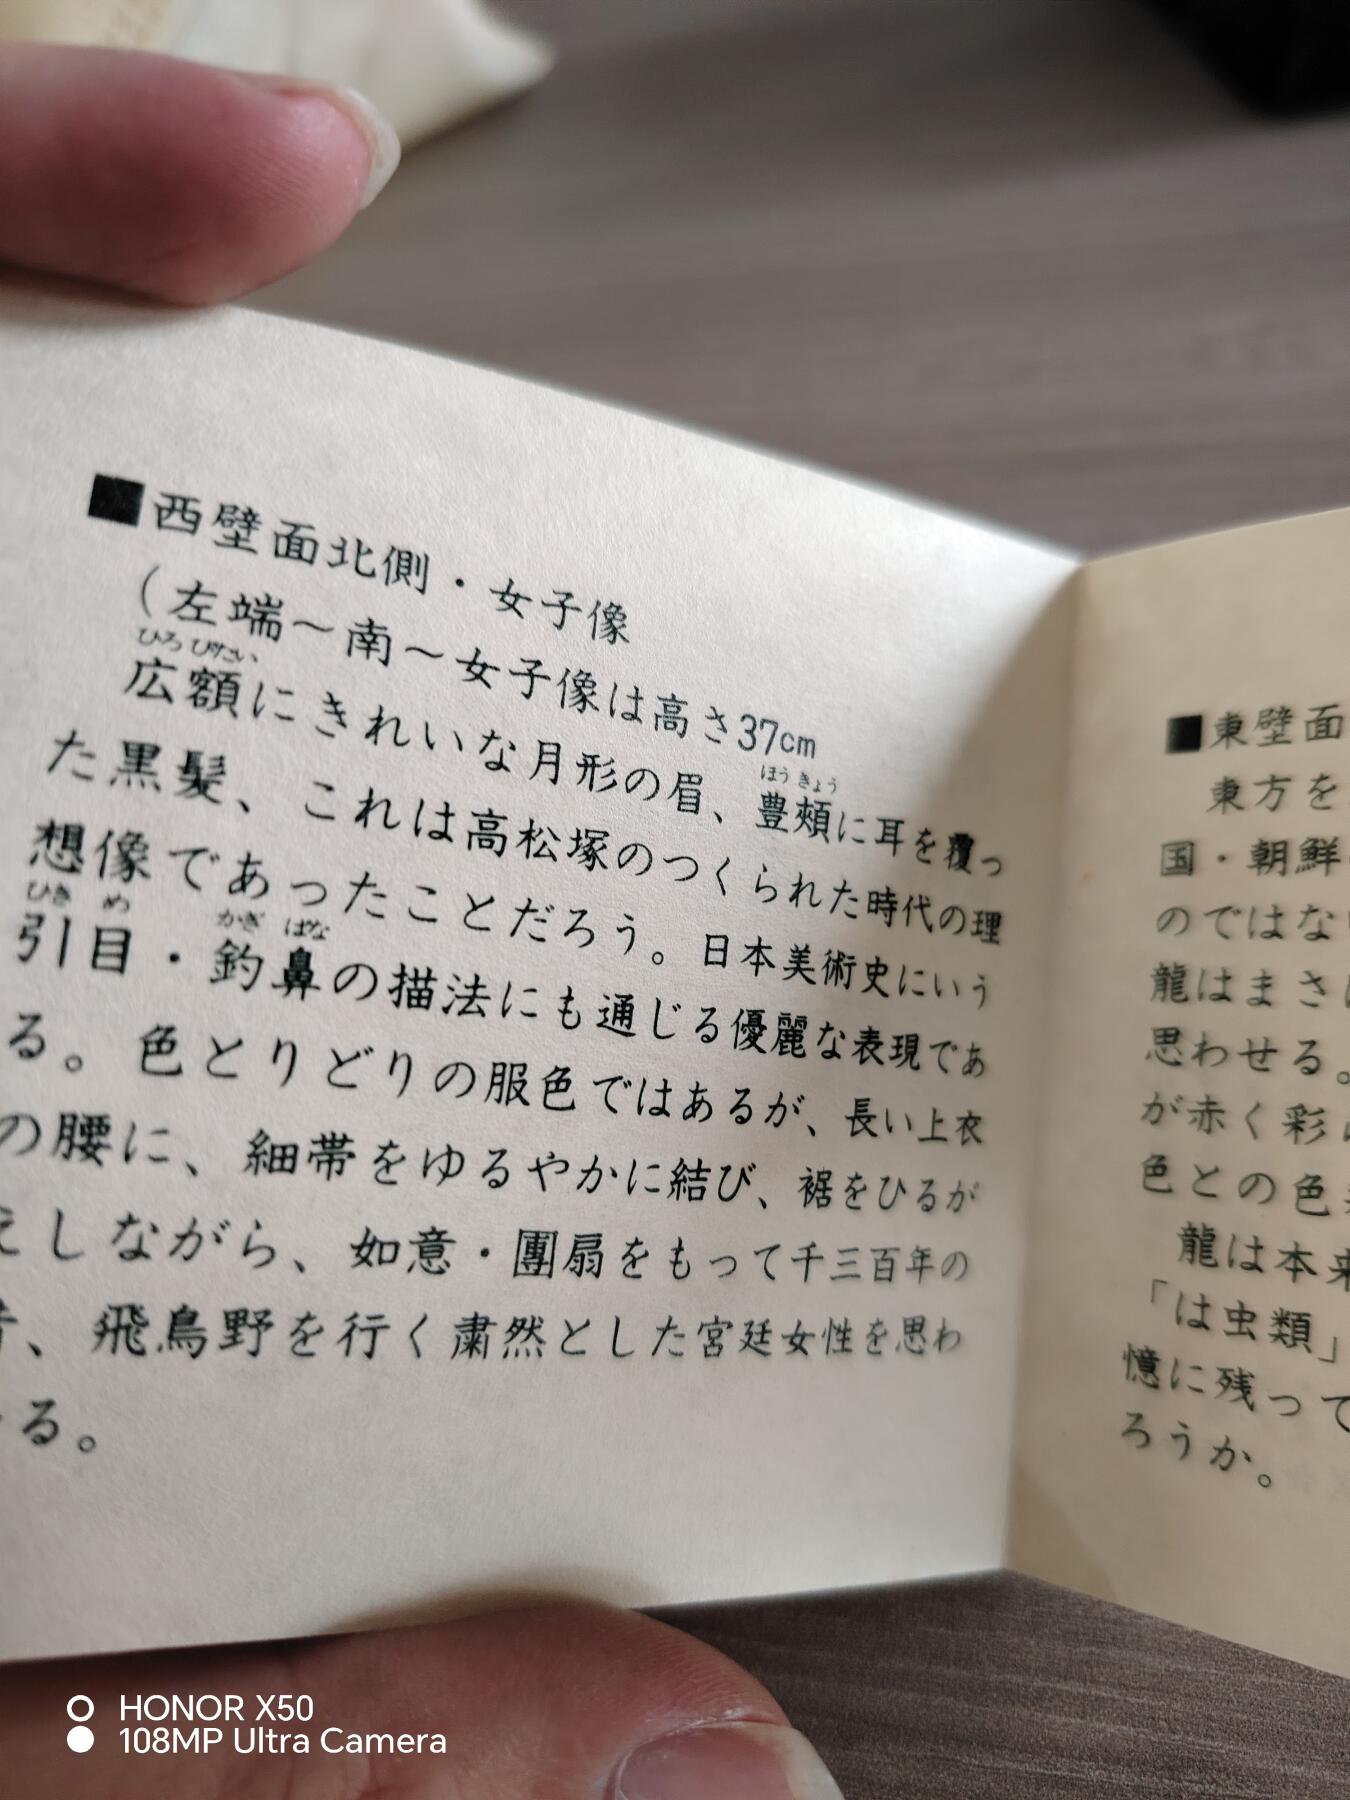 ■西壁面北側・女子像
(左端～南～女子像は高さ37cm
ひろ びたい
広額にきれいな月形の眉、豊頰に耳を覆っ
ほう きょう
た黒髪、これは高松塚のつくられた時代の理
想像であったことだろう。日本美術史にいう
ひき め かぎ ばな
引目・釣鼻の描法にも通じる優麗な表現であ
る。色とりどりの服色ではあるが、長い上衣
の腰に、細帯をゆるやかに結び、裾をひるが
えしながら、如意・團扇をもって千三百年の
、飛鳥野を行く粛然とした宮廷女性を思わ
る。
■東壁面
東方を
国・朝鮮
のではな
龍はまさ
思わせる。
が赤く彩
色との色
龍は本来
「は虫類」
憶に残って
ろうか。
HONOR X50
108MP Ultra Camera